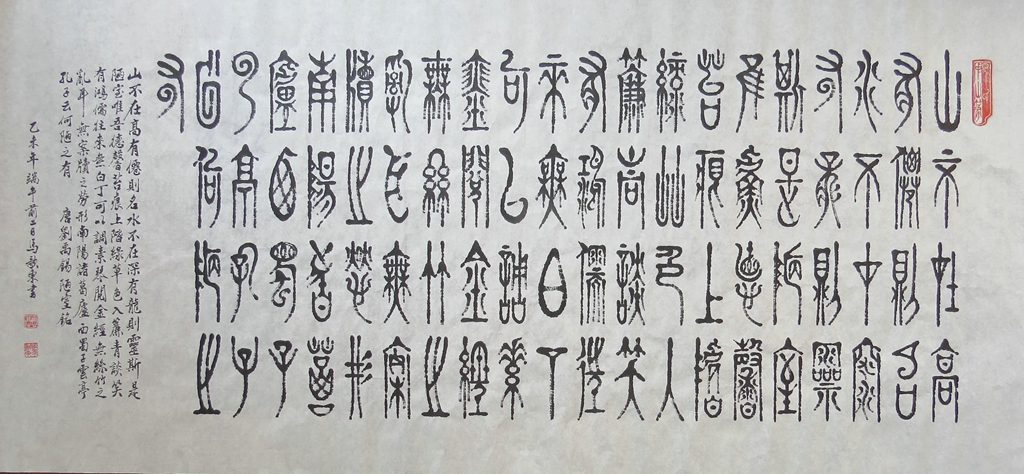 山不在高
有僊則名
水不在深
有龍則靈
斯是陋室
唯吾德馨
苔痕上階
綠艸色入
簾青談笑
有鴻儒往
來無白丁
可以調素
琴閱金經
無絲竹之
亂耳無案
牘之勞形
南陽諸葛
廬西蜀子
云亭孔子
曰何陋之
有
山不在高有僊則名水不在深有龍則靈斯是
陋室唯吾德馨苔痕上階綠草色入簾青談笑
有鴻儒往來無白丁可以調素琴閱金經無絲竹之
亂耳無案牘之勞形南陽諸葛廬西蜀子雲亭
孔子云何陋之有 唐劉禹錫陋室銘
乙未年端午前一日馬東書